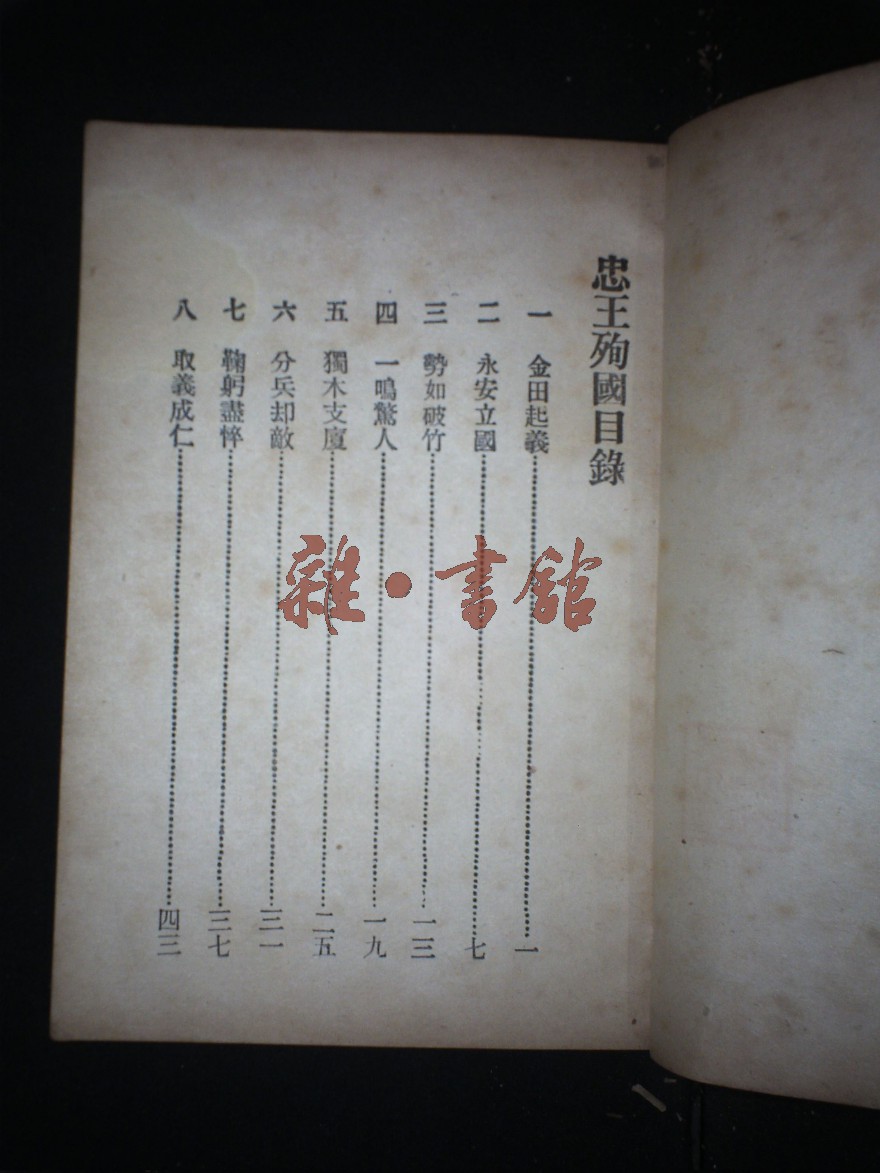 忠王殉國目錄
一 金田起義……一
二 永安立國……七
三 勢如破竹……一三
四 一鳴驚人……一九
五 獨木支廈……二五
六 分兵却敵……三一
七 鞠躬盡悴……三七
八 取義成仁……四三
雜·書館